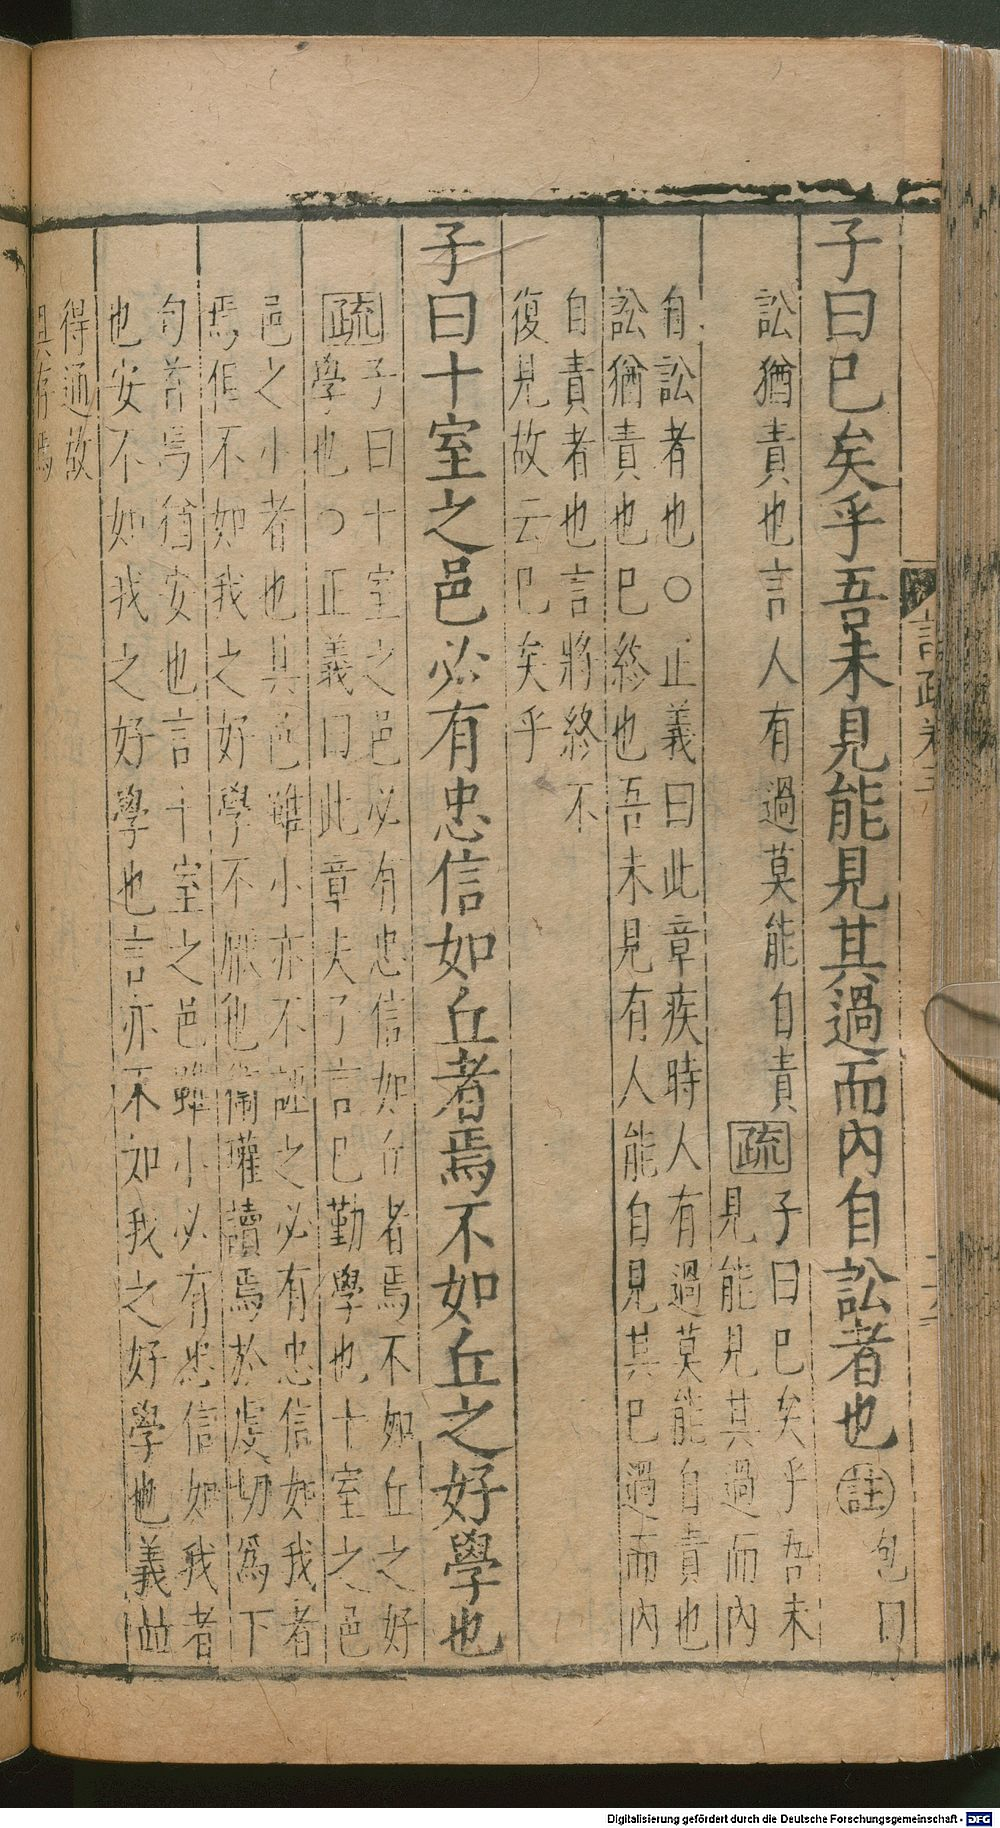 子曰已矣乎吾未見能見其過而內自訟者也註包曰
訟猶責也言人有過莫能自責疏子曰已矣乎吾未
見能見其過而內
自訟者也○正義曰此章疾時人有過莫能自責也
訟猶責也已終也吾未見有人能自見其已過而內
自責者也言將終不
復見故云已矣乎
子曰十室之邑必有忠信如丘者焉不如丘之好學也
疏子曰十室之邑必有忠信如丘者焉不如丘之好
學也○正義曰此章夫子言已勤學也十室之邑
邑之小者也其邑雖小亦不誣之必有忠信如我者
焉但不如我之好學不厭也衛瓘讀焉於虔切為下
句首焉猶安也言十室之邑雖小必有忠信如我者
也安不如我之好學也言亦不如我之好學也義並
得通故
具存焉